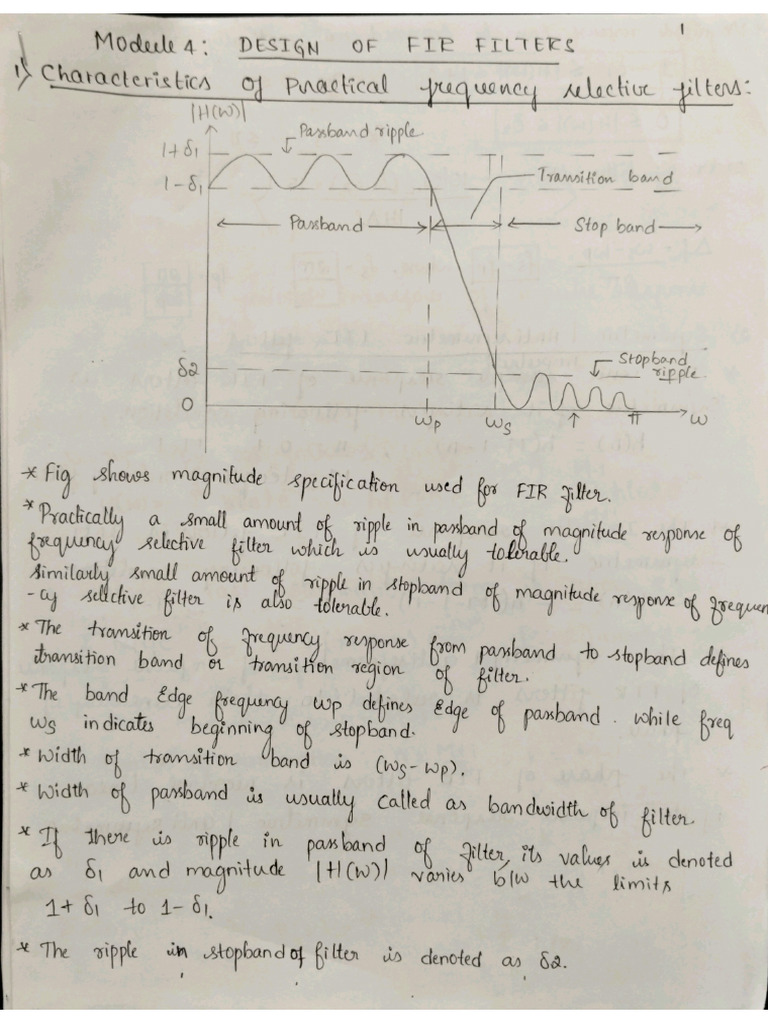 1
Module 4: DESIGN OF FIR FILTERS
1) Characteristics of Practical frequency selective filters:
|H(W)|
Passband ripple
1+δ1
1-δ1
Transition band
Passband
Stop band
δ2
Stopband ripple
0
Wp
Ws
π
w
* Fig shows magnitude specification used for FIR filter.
* Practically a small amount of ripple in passband of magnitude response of
frequency selective filter which is usually tolerable.
Similarly small amount of ripple in stopband of magnitude response of frequen
-cy selective filter is also tolerable.
* The transition of frequency response from passband to stopband defines
transition band or transition region of filter.
* The band Edge frequency wp defines Edge of passband. while freq
ws indicates beginning of stopband.
* Width of transition band is (ws-wp).
* Width of passband is usually called as bandwidth of filter.
* If there is ripple in passband of filter, its values is denoted
as δ1 and magnitude |H(W)| varies b/w the limits
1+δ1 to 1-δ1.
* The ripple in stopband of filter is denoted as δ2.